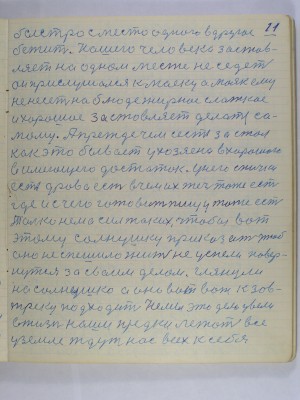 21
быстро с место одного вдругое
бежит. Нашего человека застав-
ляет на одном месте не седет
он прислушался к маеку а маяк ему
ненесет на блюде жирное сладкое
и хорошое заставляет делат са-
мому. А прежде чем сест за стол
как это бывает ухозяена вхорошого
в имеющего достаток. Унего спички
есть дрова ест вчем их жеч тоже ест
где и с чего готовит пищу тоже ест
Только нема сил таких чтобы вот
этому солнушку приказат чтоб
оно неспешило жит не успел повер-
нутся засваим делом, глянули
на солнушко а оно вот вот к зов-
трику подходит
наши предки лежат все
уземле ждут нас всех к себя